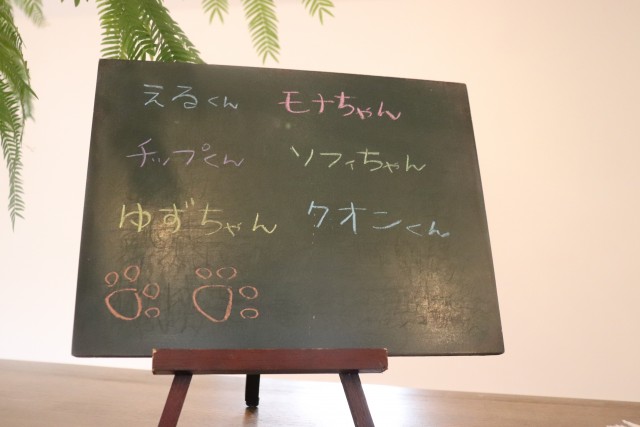 えるくん モナちゃん
チップくん ソフィちゃん
ゆずちゃん クオンくん